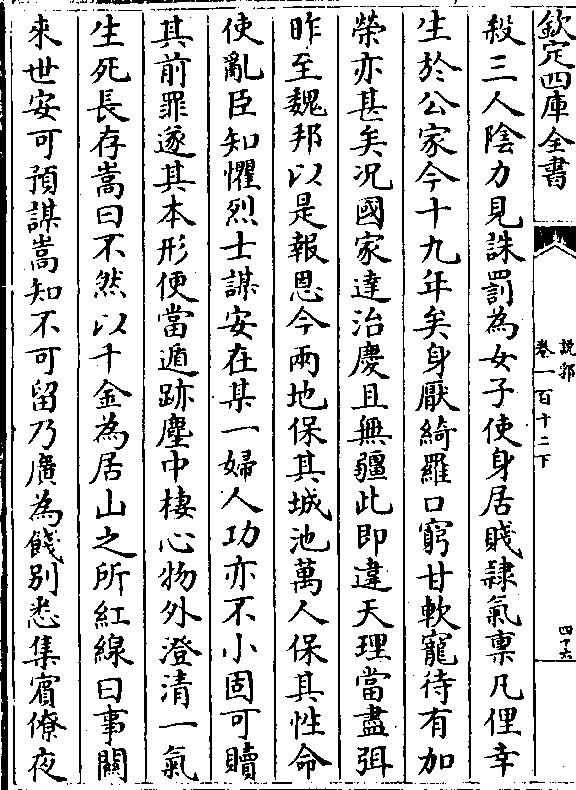 欽定四庫全書
說郛
卷一百十二下
四十六
殺三人陰力見誅罰為女子使身居賤隸氣稟凡俚幸
生於公家今十九年矣身厭綺羅口窮甘軟寵待有加
榮亦甚矣况國家達治慶且無疆此即違天理當盡弭
昨至魏邦以是報恩今兩地保其城池萬人保其性命
使亂臣知懼烈士謀安在某一婦人功亦不小固可贖
其前罪遂其本形便當遁跡塵中棲心物外澄清一氣
生死長存嵩曰不然以千金為居山之所紅線曰事關
來世安可預謀嵩知不可留乃廣為餞别悉集賓僚夜